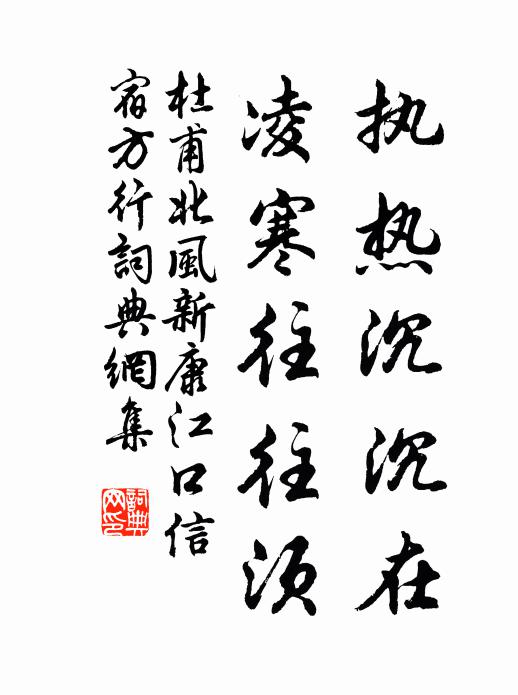 执热沉沉在
凌寒往往须
杜甫北風新康江口信
宿方行詞典網集
詞典
网印